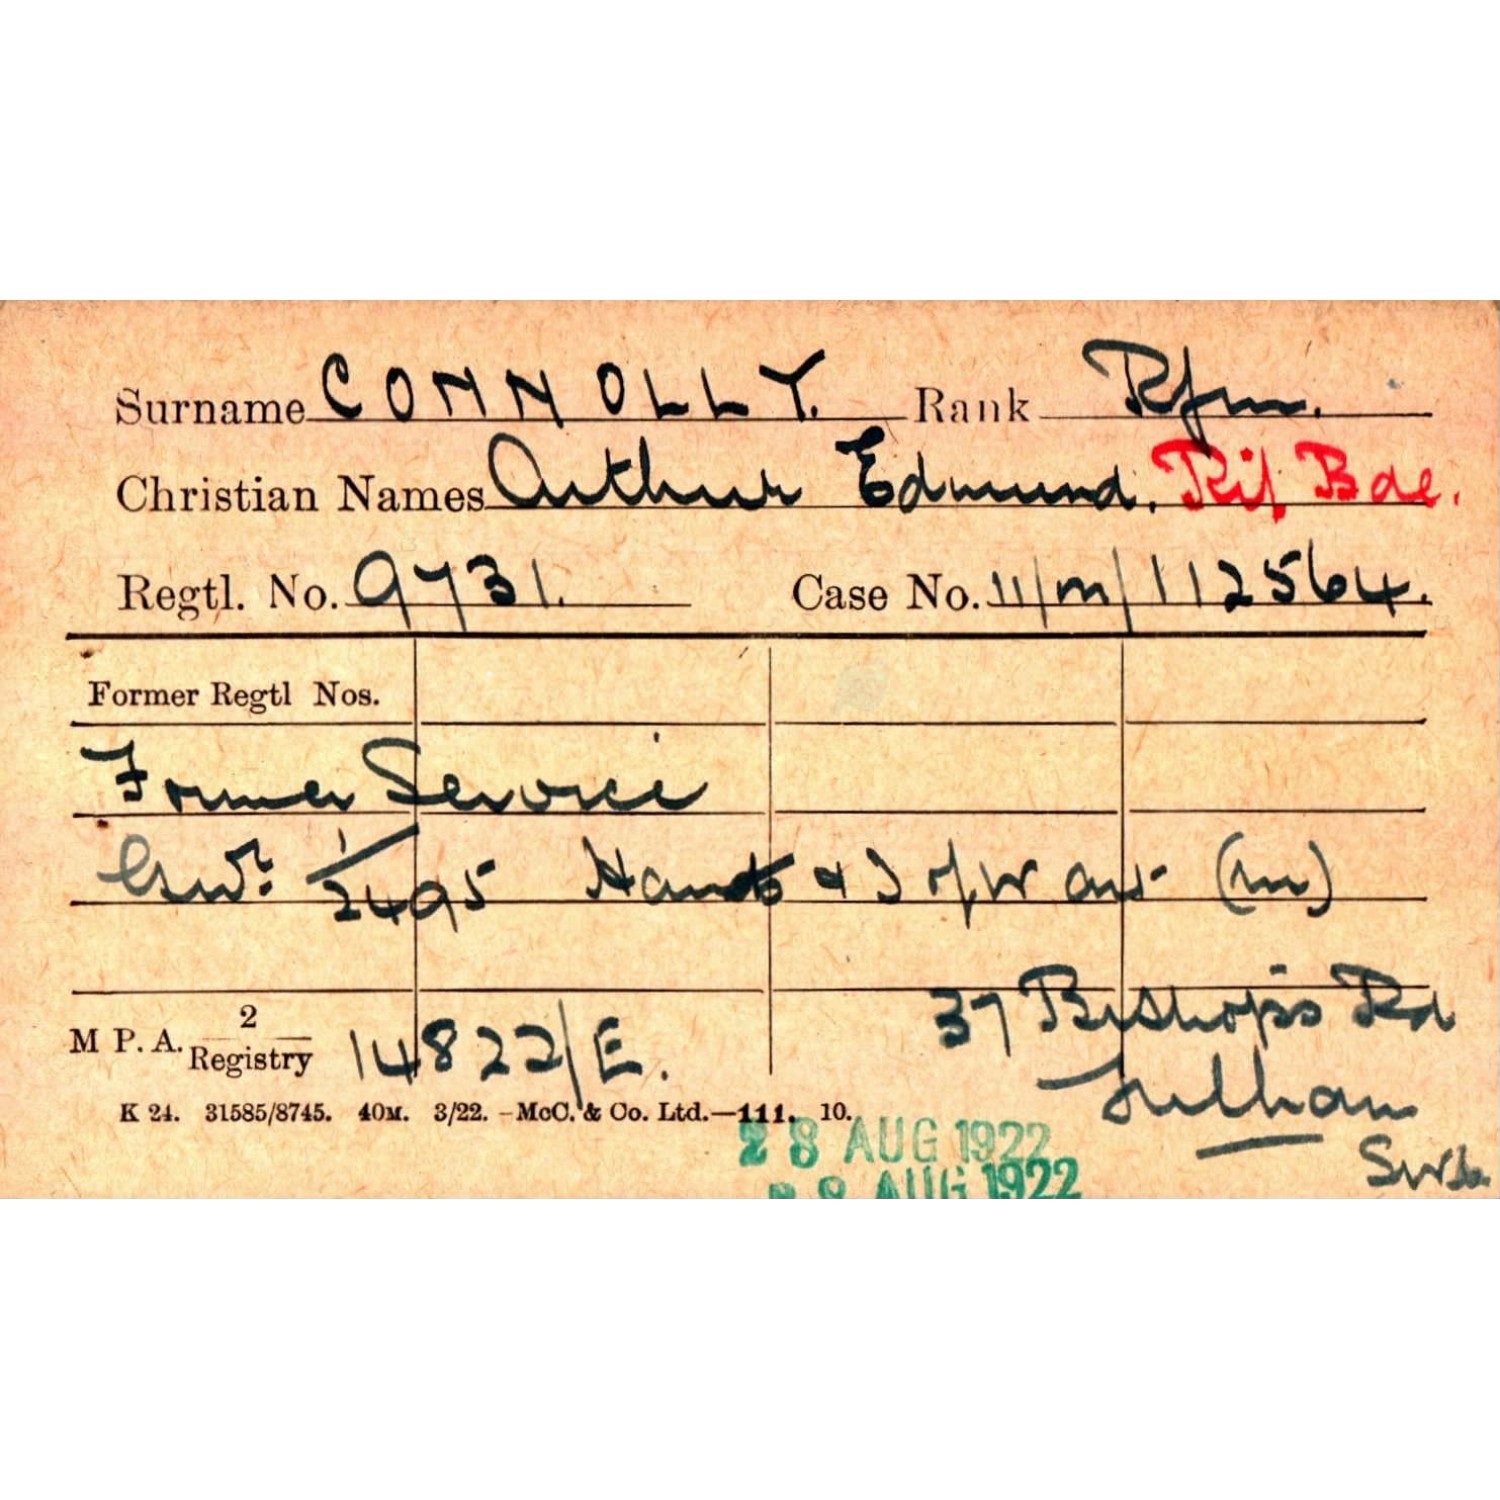 Surname CONNOLLY. Rank Rfm.
Christian Names Arthur Edmund. Rif Bde.
Regtl. No. 9731. Case No. 11/M/112564.
Former Regtl Nos.
Former Service
Gnr. 1/2495 Hants & I of W Art (M)
M P. A. 2/Registry 14822/E.
37 Bishops Rd
Fulham
SW6.
K 24. 31585/8745. 40M. 3/22. - McC. & Co. Ltd.—111. 10.
28 AUG 1922
28 AUG 1922